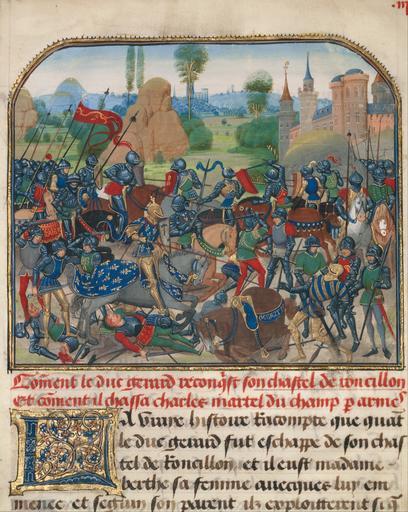 Coment le duc gerard reconq̃st son chastel de roncillon
Et coment il chassa charles martel du champ p armes
La vraye histoire Racompte que quãt
le duc gerard fut eschape de son chas
tel de Roncillon, et il eust madame
berthe sa femme auecques luy em
menee et seguin son parent ilz exploitterent si q̃